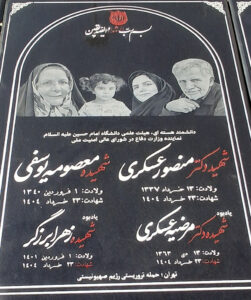 بسم رب الشهداء و الصدیقین
دانشمند هسته ای، هیئت علمی دانشگاه امام حسین علیه السلام
نماینده وزارت دفاع در شورای عالی امنیت ملی
شهید دکتر منصور عسکری
ولادت: ۱۳ خرداد ۱۳۳۷
شهادت: ۲۳ خرداد ۱۴۰۴
شهیده معصومه یوسفی
ولادت: ۱ فروردین ۱۳۴۰
شهادت: ۲۳ خرداد ۱۴۰۴
یادبود
شهیده دکتر مرضیه عسکری
ولادت: ۱۳ دی ۱۳۶۳
شهادت: ۲۳ خرداد ۱۴۰۴
یادبود
شهیده زهرا برزگر
ولادت: ۱ فروردین ۱۴۰۱
شهادت: ۲۳ خرداد ۱۴۰۴
تهران؛ حمله تروریستی رژیم صهیونیستی